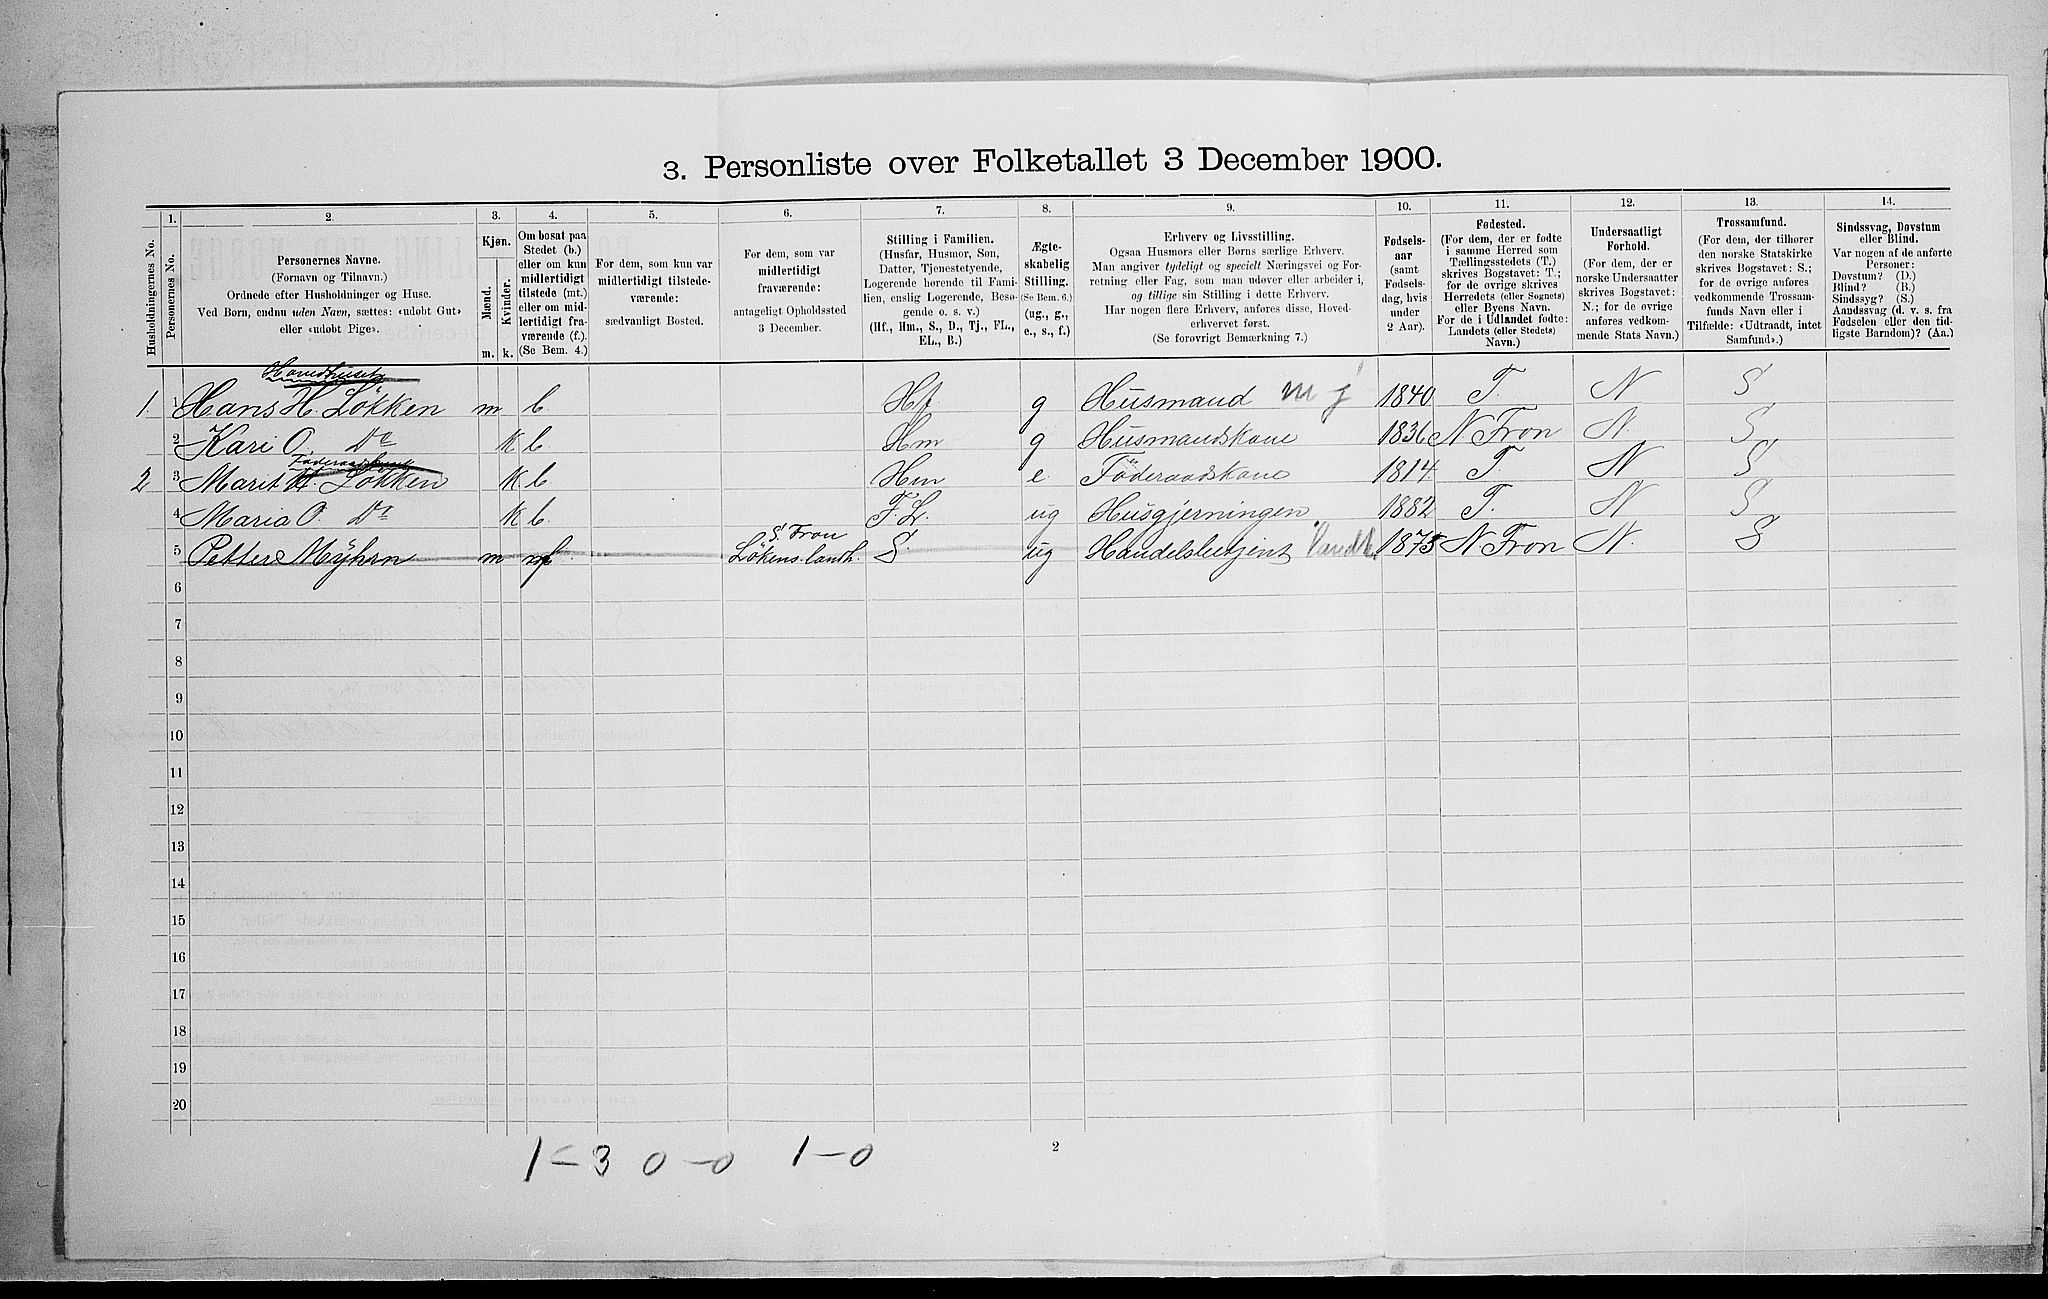 3. Personliste over Folketallet 3 December 1900.
1. 2. 3. 4. 5. 6. 7. 8. 9. 10. 11. 12. 13. 14.
Husholdningernes No.
Personernes No.
Personernes Navne.
(Fornavn og Tilnavn.)
Ordnede efter Husholdninger og Huse.
Ved Børn, endnu uden Navn, sættes: «udøbt Gut»
eller «udøbt Pige».
Kjøn.
Mænd.
Kvinder.
m. k.
Om bosat paa
Stedet (b.)
eller om kun
midlertidigt
tilstede (mt.)
eller om mid-
lertidigt fra-
værende (f.)
(Se Bem. 4.)
For dem, som kun var
midlertidigt tilstede-
værende:
sædvanligt Bosted.
For dem, som var
midlertidigt
fraværende:
antageligt Opholdssted
3 December.
Stilling i Familien.
(Husfar, Husmor, Søn,
Datter, Tjenestetyende,
Logerende hørende til Fami-
lien, enslig Logerende, Besø-
gende o. s. v.)
(Hf., Hm., S., D., Tj., FL.,
EL., B.)
Ægte-
skabelig
Stilling.
(Se Bem. 6.)
(ug., g.,
e., s., f.)
Erhverv og Livsstilling.
Ogsaa Husmors eller Børns særlige Erhverv.
Man angiver tydeligt og specielt Næringsvei og For-
retning eller Fag, som man udøver eller arbeider i,
og tillige sin Stilling i dette Erhverv.
Har nogen flere Erhverv, anføres disse, Hoved-
erhvervet først.
(Se forøvrigt Bemærkning 7.)
Fødsels-
aar
(samt
Fødsels-
dag, hvis
under
2 Aar).
Fødested.
(For dem, der er fødte
i samme Herred som
Tællingsstedets (T.)
skrives Bogstavet: T.;
for de øvrige skrives
Herredets (eller Sognets)
eller Byens Navn.
For de i Udlandet fødte:
Landets (eller Stedets)
Navn.)
Undersaatligt
Forhold.
(For dem, der er
norske Undersaatter
skrives Bogstavet:
N.; for de øvrige
anføres vedkom-
mende Stats Navn.)
Trossamfund.
(For dem, der tilhører
den norske Statskirke
skrives Bogstavet: S.;
for de øvrige anføres
vedkommende Trossam-
funds Navn eller i
Tilfælde: «Udtraadt, intet
Samfund».)
Sindssvag, Døvstum
eller Blind.
Var nogen af de anførte
Personer:
Døvstum? (D.)
Blind? (B.)
Sindssyg? (S.)
Aandssvag (d. v. s. fra
Fødselen eller den tid-
ligste Barndom)? (Aa.)
Hovedhuset
1. 1 Hans H. Løkken m b. Hf. g Husmand m j 1840 T. N S
2 Kari O. Do k b. Hm g Husmandskone 1836 N Fron N S
Føderaadshuset
2 3 Marit H. Løkken k b Hm e. Føderaadskone 1814 T. N S
4 Maria O. Do k b. F.L. ug Husgjerningen 1882 T. N S
S. Fron
5 Petter Myhrn m f Løkens landh. S. ug Handelsbetjent Landh. 1875 N Fron N S
6
7
8
9
10
11
12
13
14
15
16
17
18
19
20
1-3 0-0 1-0
2